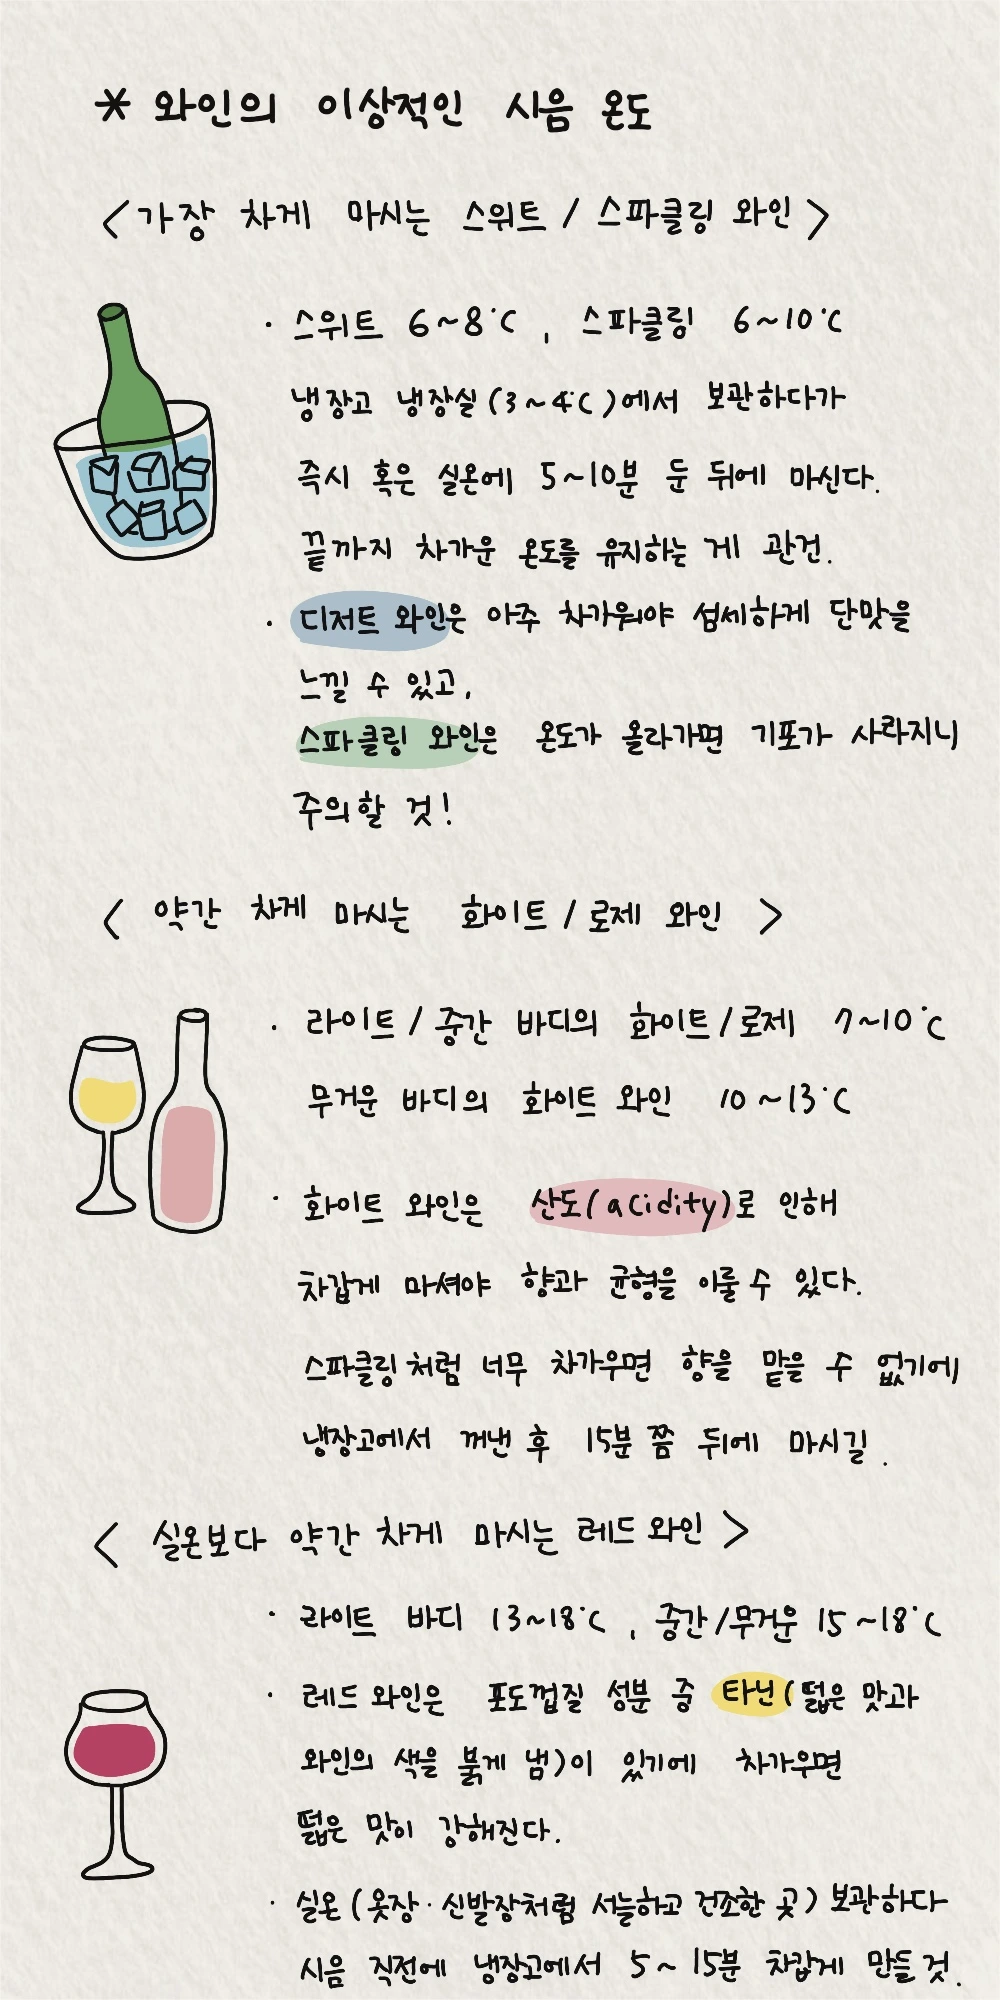 * 와인의 이상적인 시음 온도
<가장 차게 마시는 스위트 / 스파클링 와인>
· 스위트 6~8°C , 스파클링 6~10°C
냉장고 냉장실(3~4°C)에서 보관하다가
즉시 혹은 실온에 5~10분 둔 뒤에 마신다.
끝까지 차가운 온도를 유지하는 게 관건.
· 디저트 와인은 아주 차가워야 섬세하게 단맛을
느낄 수 있고,
스파클링 와인은 온도가 올라가면 기포가 사라지니
주의할 것!
< 약간 차게 마시는 화이트 / 로제 와인 >
· 라이트 / 중간 바디의 화이트/로제 7~10°C
무거운 바디의 화이트 와인 10~13°C
· 화이트 와인은 산도(acidity)로 인해
차갑게 마셔야 향과 균형을 이룰 수 있다.
스파클링처럼 너무 차가우면 향을 맡을 수 없기에
냉장고에서 꺼낸 후 15분 쯤 뒤에 마시길.
< 실온보다 약간 차게 마시는 레드 와인 >
· 라이트 바디 13~18°C , 중간/무거운 15~18°C
· 레드 와인은 포도껍질 성분 중 타닌(떫은 맛과
와인의 색을 붉게 냄)이 있기에 차가우면
떫은 맛이 강해진다.
· 실온 (옷장·신발장처럼 서늘하고 건조한 곳) 보관하다
시음 직전에 냉장고에서 5~15분 차갑게 만들 것.